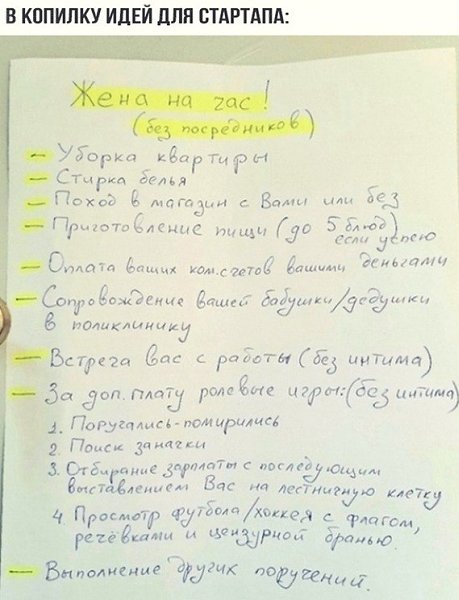 В КОПИЛКУ ИДЕЙ ДЛЯ СТАРТАПА:
Жена на час!
(без посредников)
— Уборка квартиры
— Стирка белья
— Поход в магазин с Вами или без
— Приготовление пищи (до 5 блюд)
если успею
— Оплата ваших ком.счетов вашими деньгами
— Сопровождение вашей бабушки/дедушки
в поликлинику
— Встреча вас с работы (без интима)
— За доп. плату ролевые игры: (без интима)
1. Поругались-помирились
2. Поиск заначки
3. Отбирание зарплаты с последующим
выставлением Вас на лестничную клетку
4. Просмотр футбола/хоккея с флагом,
речёвками и цензурной бранью
— Выполнение других поручений.